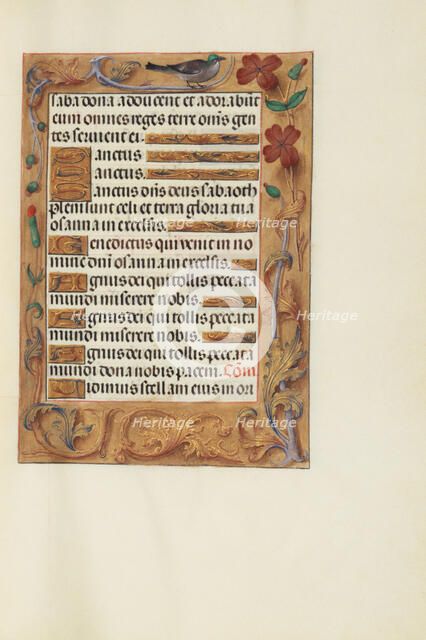 saba dona adducent et adorabūt
eum omnes reges terre om̄s gen
tes servient ei.
Sanctus
Sanctus.
Sanctus dn̄s deus sabaoth
pleni sunt celi et terra gloria tua
osanna in excelsis.
Benedictus qui venit in no
mine dn̄i osanna in excelsis.
Agnus dei qui tollis peccata
mundi miserere nobis.
Agnus dei qui tollis peccata
mundi miserere nobis.
Agnus dei qui tollis peccata
mundi dona nobis pacem. Cōm̄
Vidimus stellam eius in ori
Heritage
Heritage
Heritage
Heritage
Heritage
Heritage
Heritage
Heritage